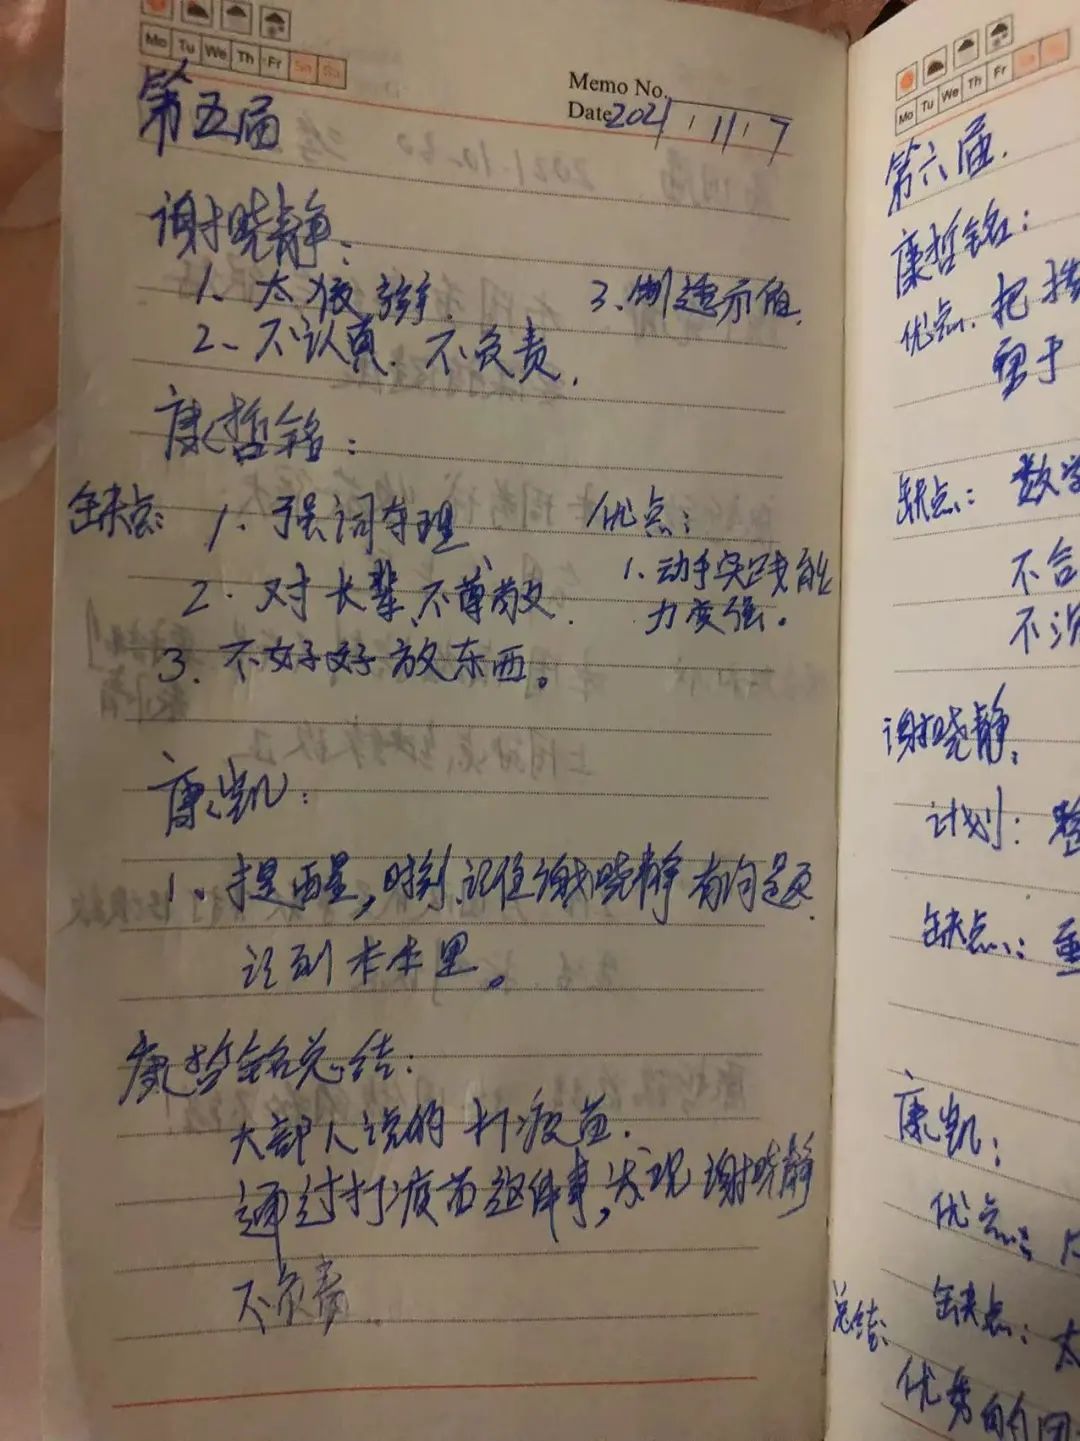 Mo Tu We Th Fr Sa Su
Memo No.
Date 2021 11 7
第五届
谢晓静：
1、太疲弱
3、制造示值.
2、不认真. 不负责.
康哲铭：
缺点：
1、强词夺理
2. 对长辈不尊敬.
3. 不好好放东西。
优点：
1.动手实践能
力变强。
康凯：
1、提醒，时刻记住谢晓静有问题
记到本本里。
康哲铭总结：
大部人说的打疫苗.
通过打疫苗这件事,发现谢晓静
不负责.
Mo Tu We Th Fr
第六届.
康哲铭：
优点. 把
至于
缺点：数学
不合
谢晓静：
计划：
缺点：
康凯：
优点：
缺点：太
总结：
优秀的团